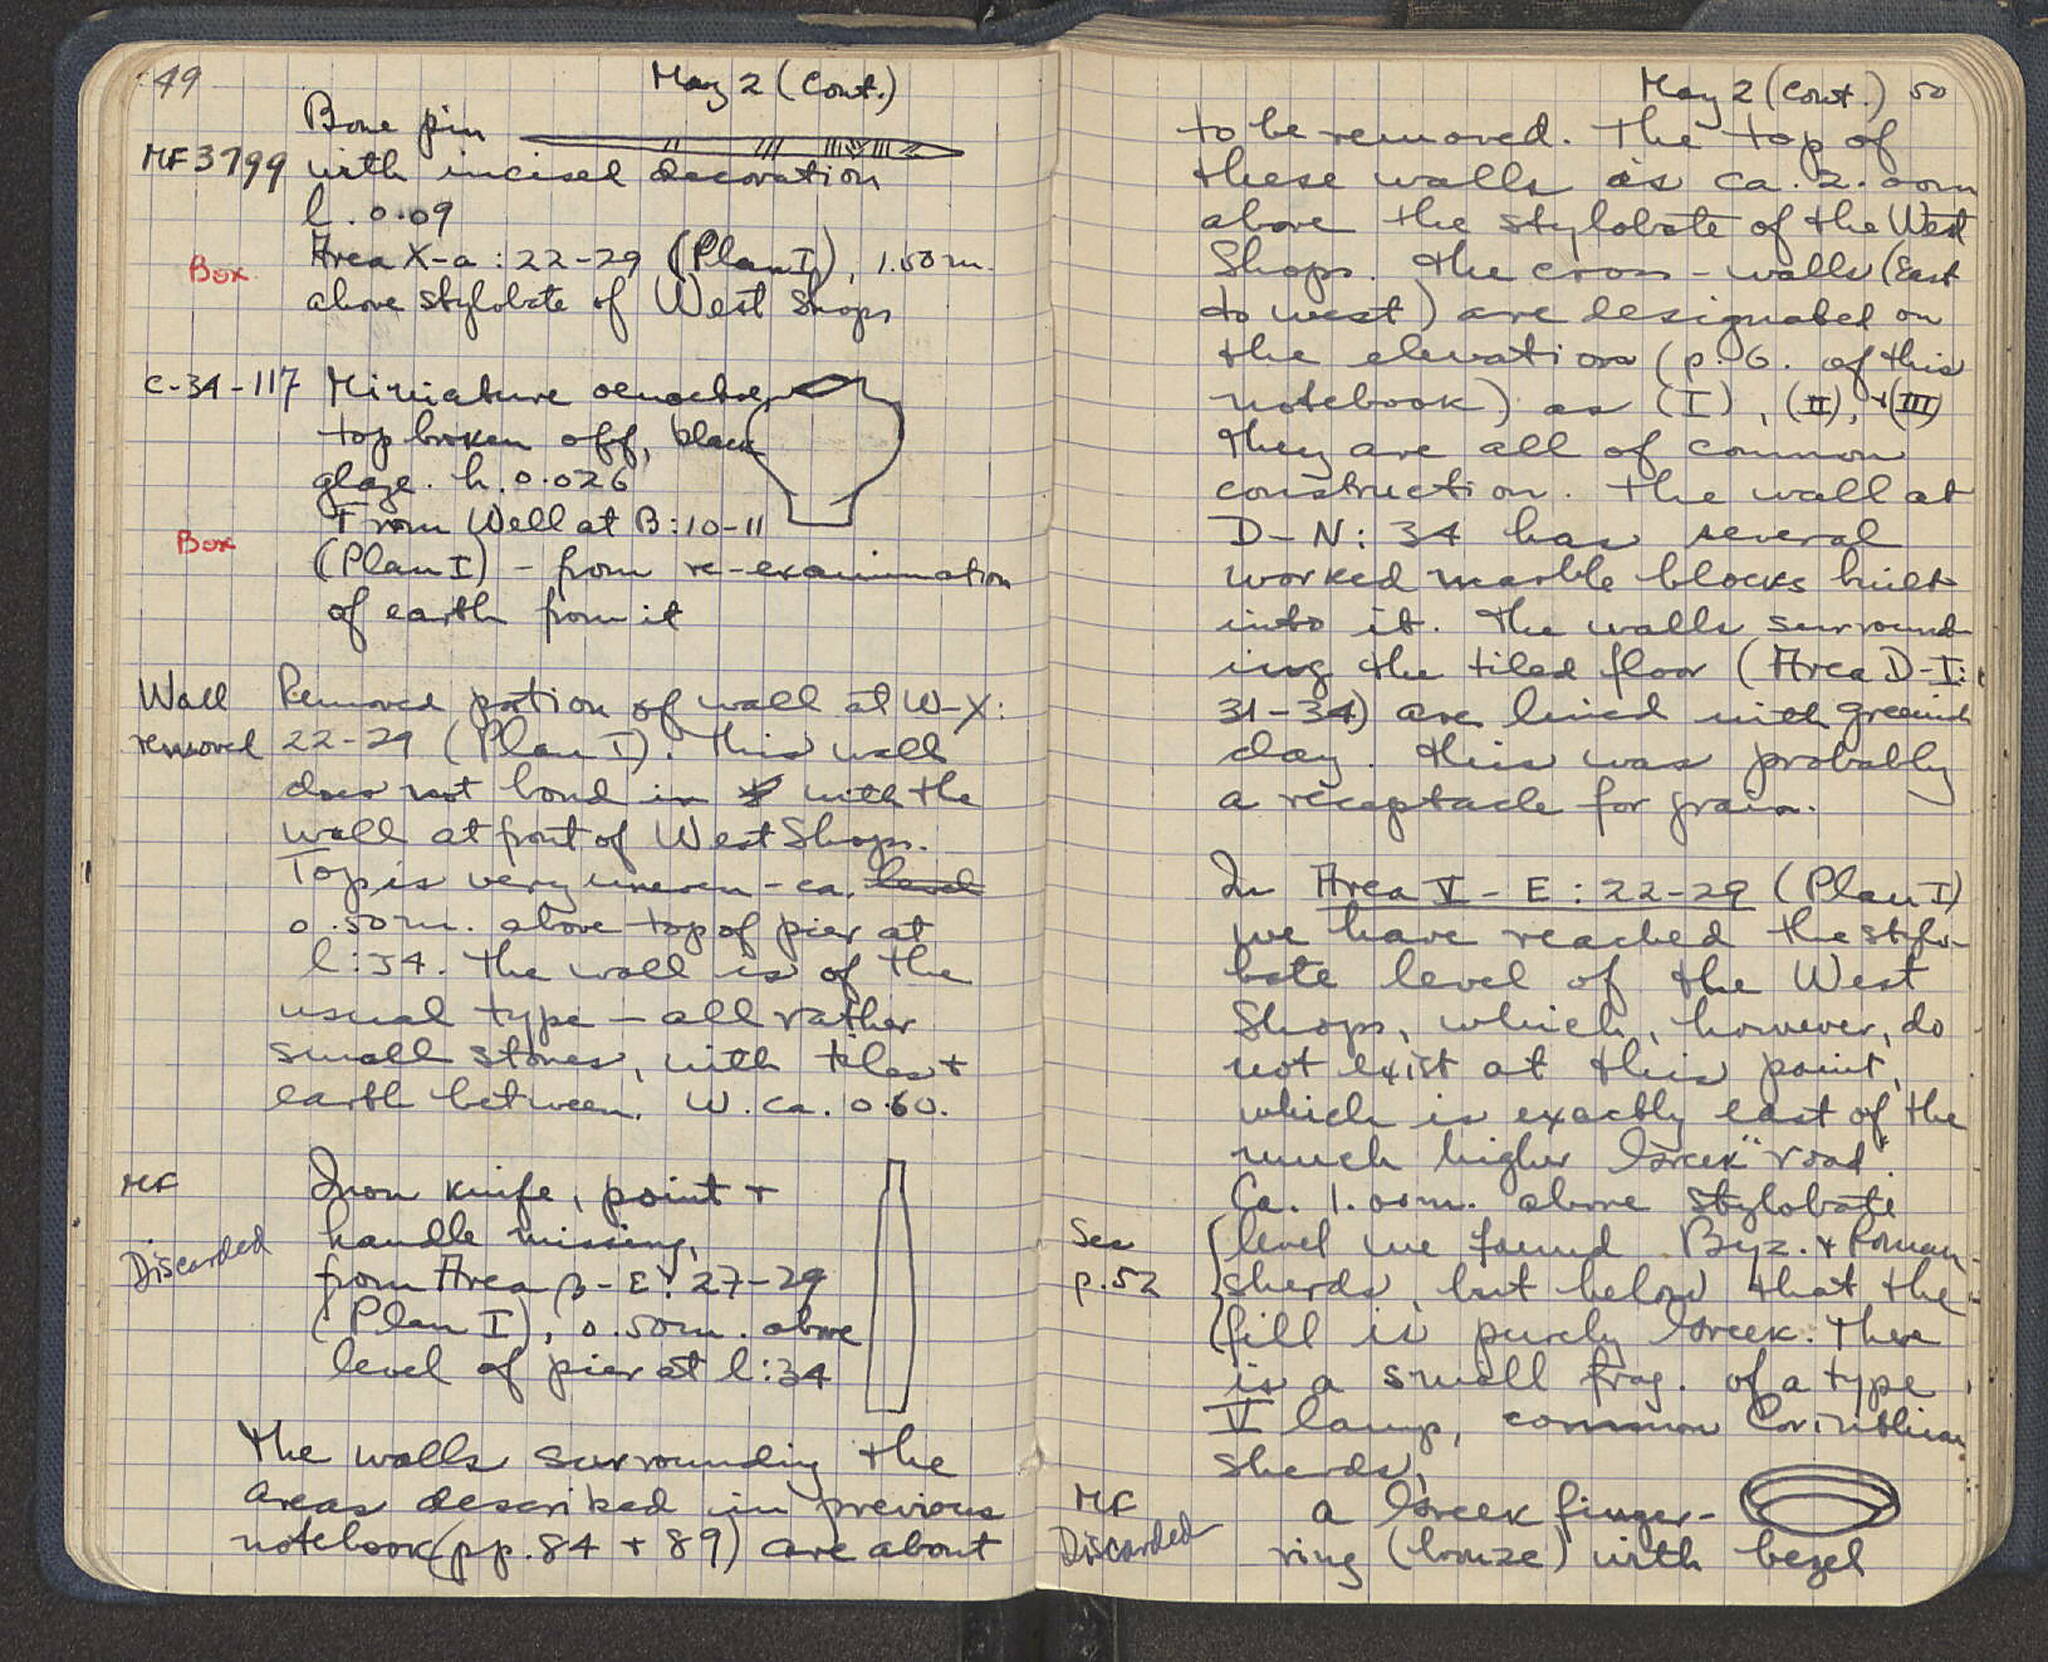 49
May 2 (Cont.)
Bone pin
MF 3799 with incised decoration
l. 0.09
Area X-a : 22-29 (Plan I), 1.50 m.
Box
above stylobate of West Shops
C-34-117 Miniature oenochoe,
top broken off, black
glaze. h. 0.026
From Well at B:10-11
Box
(Plan I) - from re-examination
of earth from it
Wall Removed portion of wall at W-X:
removed 22-29 (Plan I). This wall
does not bond in with the
wall at front of West Shops.
Top is very uneven - ca. level
0.50 m. above top of pier at
l:34. The wall is of the
usual type - all rather
small stones, with tiles +
earth between. W. ca. 0.60.
MF Iron knife, point +
handle missing,
Discarded
from Area β-E: 27-29
(Plan I), 0.50 m. above
level of pier at l:34
The walls surrounding the
areas described in previous
notebook (pp. 84 + 89) are about
May 2 (Cont.) 50
to be removed. The top of
these walls is ca. 2.00m
above the stylobate of the West
Shops. The cross-walls (East
to west) are designated on
the elevation (p. 6. of this
notebook) as (I), (II), + (III)
They are all of common
construction. The wall at
D-N: 34 has several
worked marble blocks built
into it. The walls surround-
ing the tiled floor (Area D-I:
31-34) are lined with greenish
clay. This was probably
a receptacle for grain.
In Area V - E : 22-29 (Plan I)
we have reached the stylo-
bate level of the West
Shops, which, however, do
not exist at this point,
which is exactly east of the
much higher "Greek" road.
Ca. 1.00m. above stylobate
See level we found Byz. + Roman
p. 52 sherds, but below that the
fill is purely Greek. There
is a small frag. of a type
V lamp, common Corinthian
sherds,
MF a Greek finger-
Discarded ring (bronze) with bezel